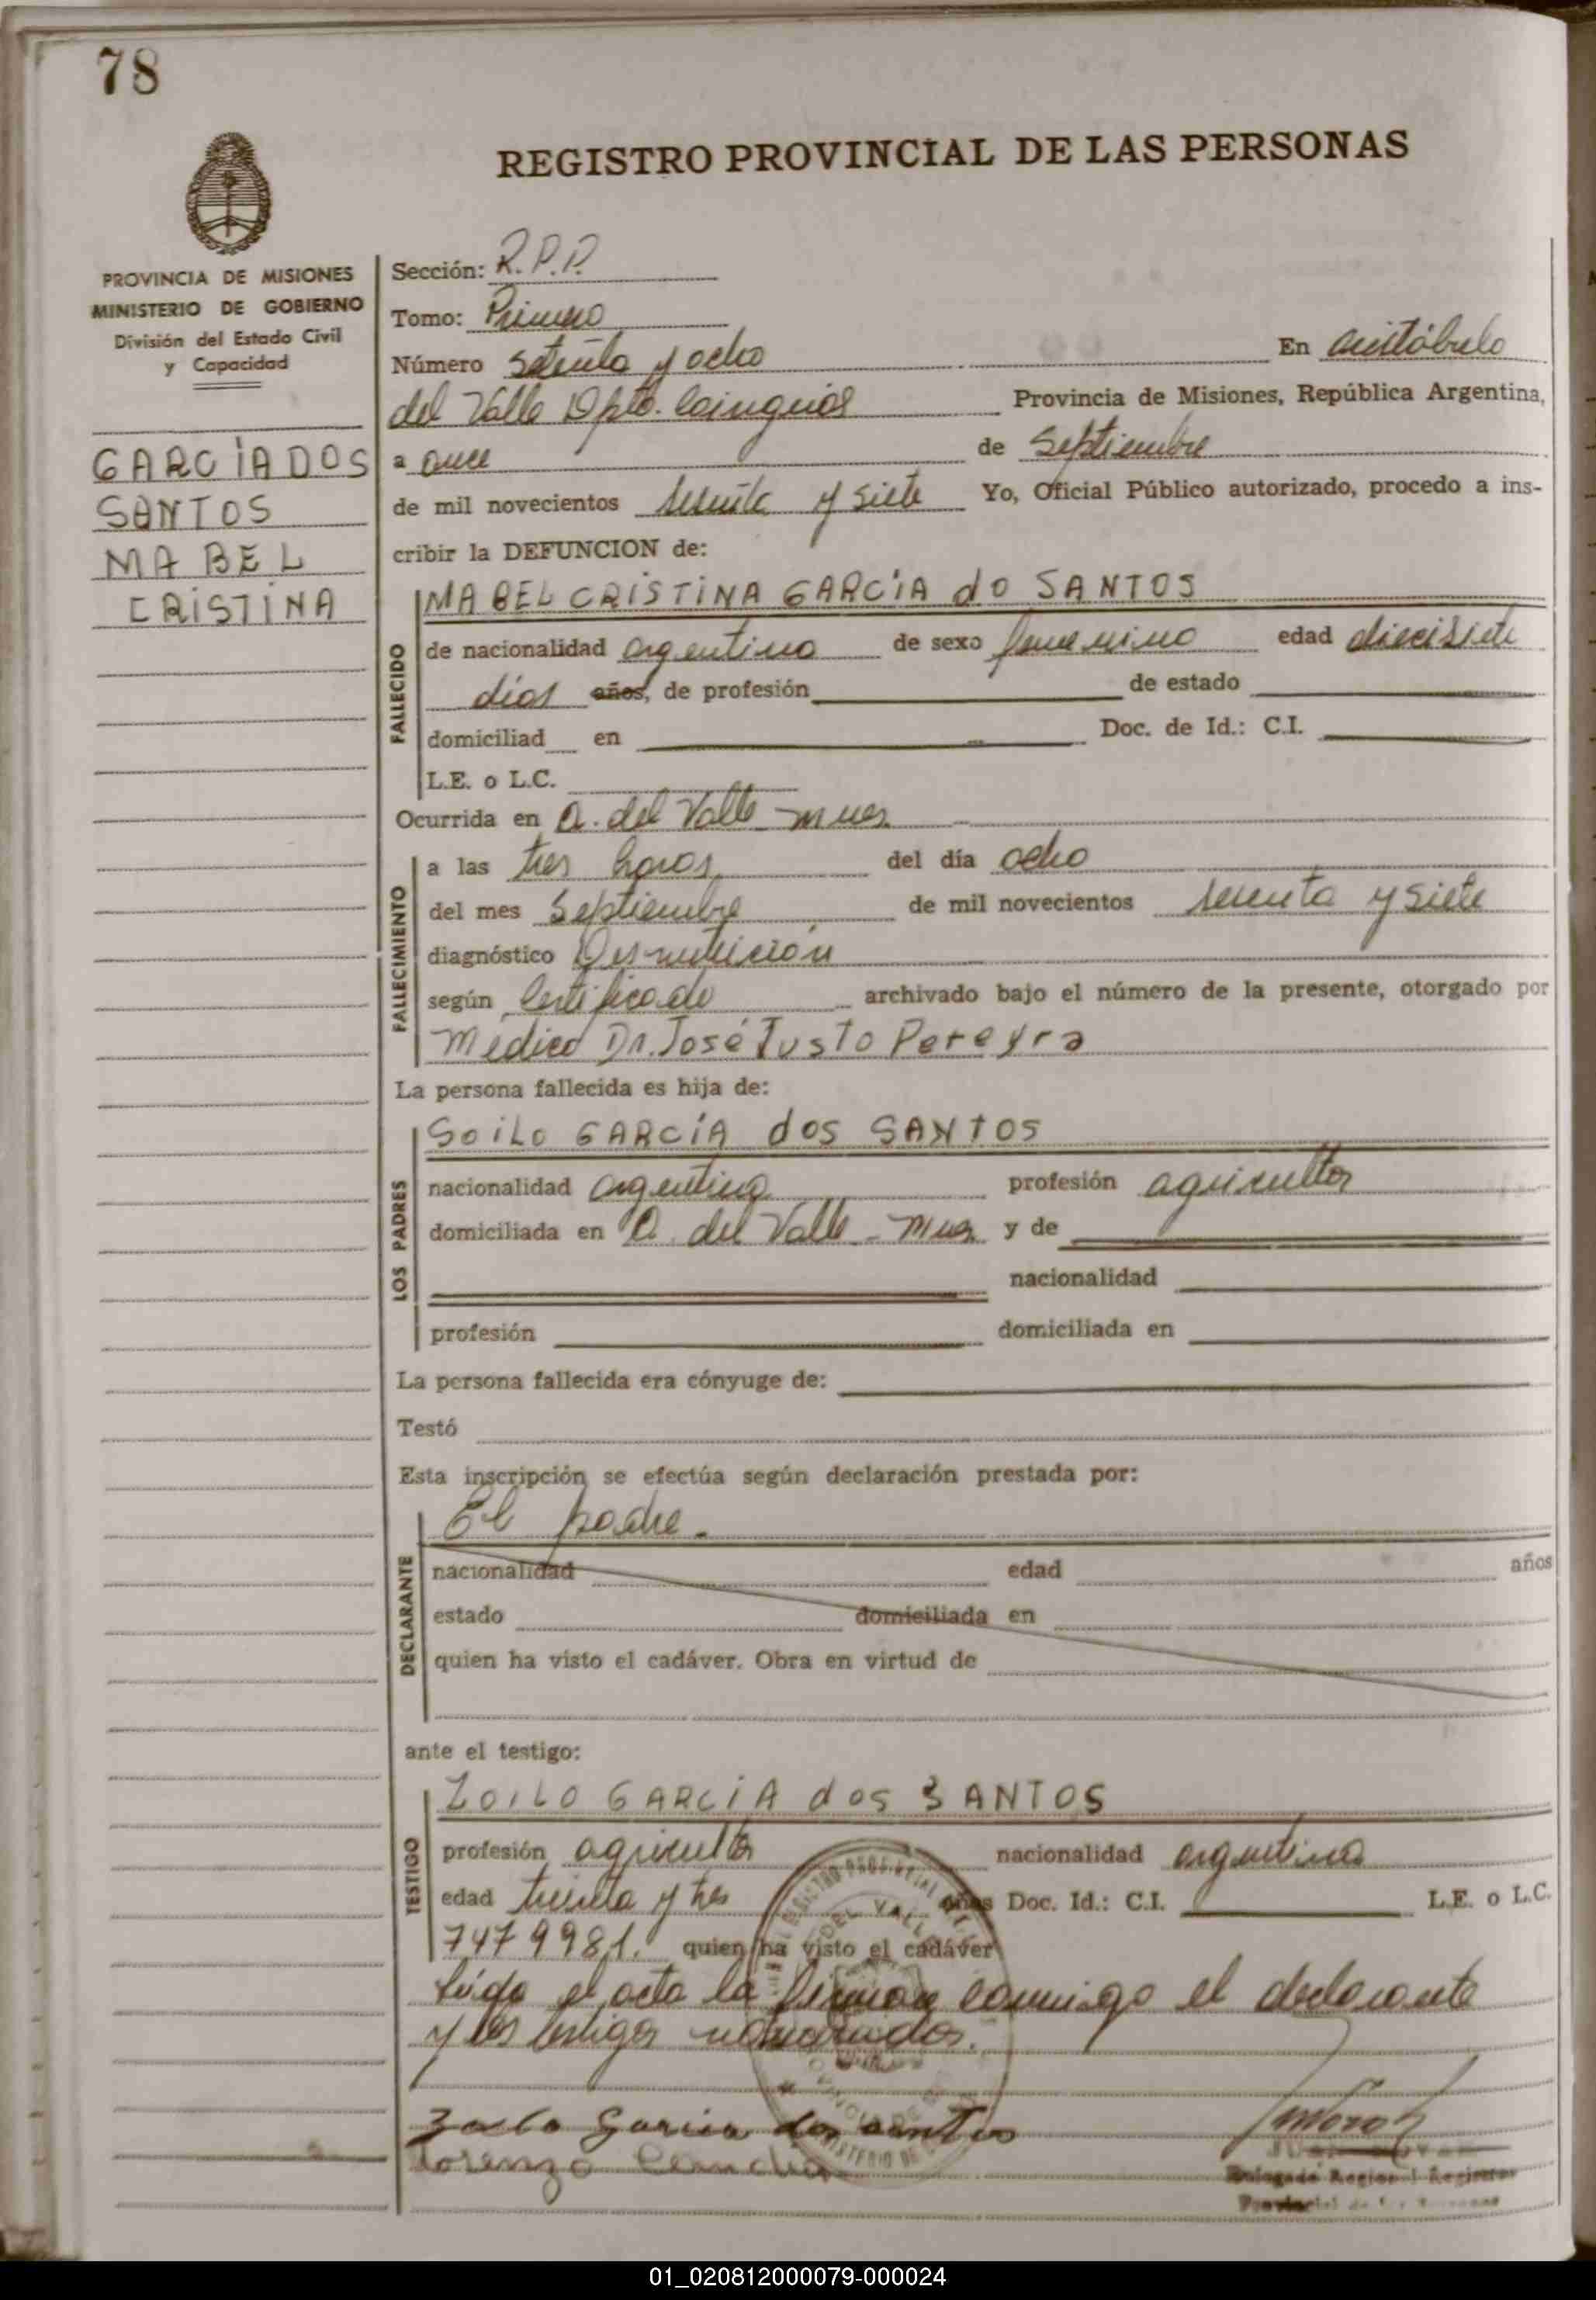 78
REGISTRO PROVINCIAL DE LAS PERSONAS
PROVINCIA DE MISIONES
MINISTERIO DE GOBIERNO
División del Estado Civil
y Capacidad
GARCÍA DOS
SANTOS
MABEL
CRISTINA
Sección: R.P.P.
Tomo: Primero
Número Setenta y ocho En Aristóbulo
del Valle Dpto. Cainguás Provincia de Misiones, República Argentina,
a once de Septiembre
de mil novecientos sesenta y siete Yo, Oficial Público autorizado, procedo a ins-
cribir la DEFUNCION de:
FALLECIDO
MABEL CRISTINA GARCÍA do SANTOS
de nacionalidad argentina de sexo femenino edad diecisiete
días años, de profesión de estado
domiciliad en Doc. de Id.: C.I.
L.E. o L.C.
Ocurrida en A. del Valle Mnes
FALLECIMIENTO
a las tres horas del día ocho
del mes Septiembre de mil novecientos sesenta y siete
diagnóstico Desnutrición
según Certificado archivado bajo el número de la presente, otorgado por
Médico Dr. José Justo Pereyra
La persona fallecida es hija de:
LOS PADRES
SOILO GARCÍA dos SANTOS
nacionalidad argentina profesión agricultor
domiciliada en A. del Valle - Mnes y de
nacionalidad
profesión domiciliada en
La persona fallecida era cónyuge de:
Testó
Esta inscripción se efectúa según declaración prestada por:
DECLARANTE
El padre.
nacionalidad edad años
estado domiciliada en
quien ha visto el cadáver. Obra en virtud de
ante el testigo:
TESTIGO
ZOILO GARCIA dos SANTOS
profesión agricultor nacionalidad argentina
edad treinta y tres años Doc. Id.: C.I. L.E. o L.C.
7479981. quien ha visto el cadáver
Leída el acta la firman conmigo el declarante
y los testigos nombrados.
Zoilo Garcia dos santos
Lorenzo
Delegado Regional Registro
Provincial de las Personas
01_020812000079-000024